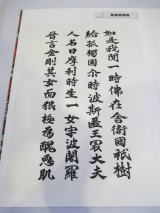 如是我聞一時佛在舍衛國祇樹
給孤獨園尒時波斯匿王冣大夫
人名曰摩利時生一女字波闍羅
晉言金剛其女面狠極為醜惡肌